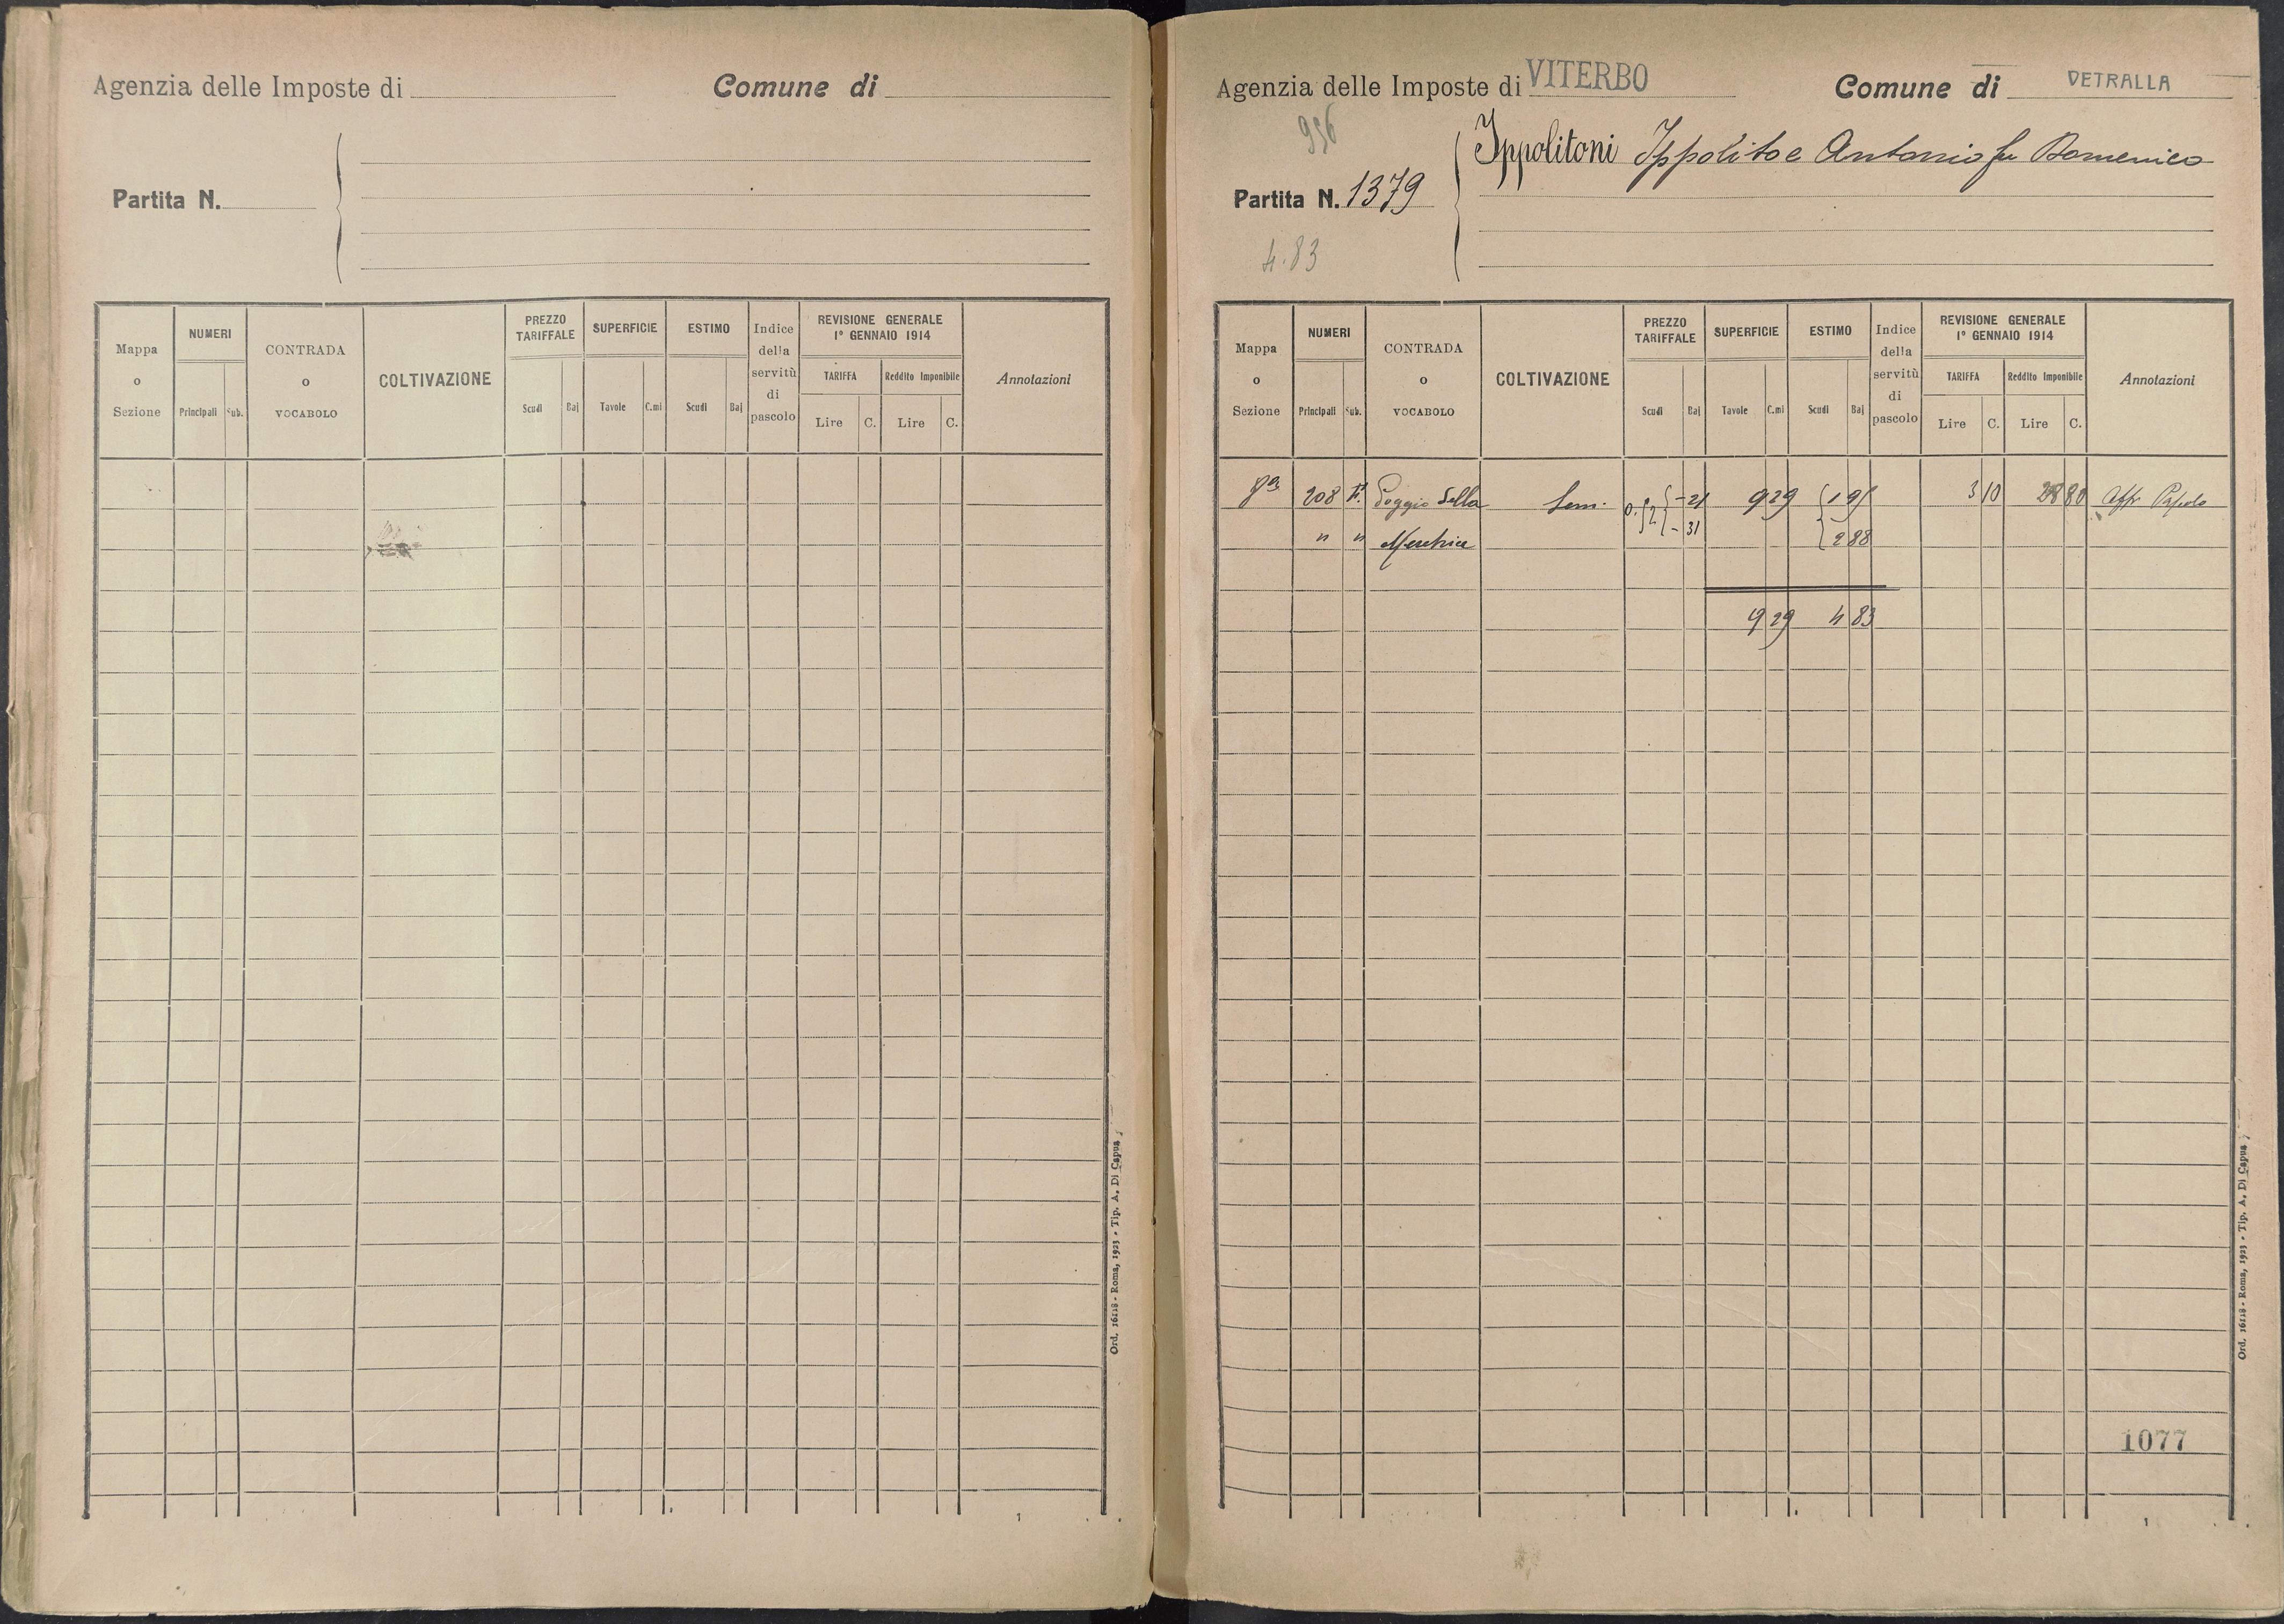 Agenzia delle Imposte di
Comune di
Partita N.
Mappa o Sezione
NUMERI
Principali
Sub.
CONTRADA o VOCABOLO
COLTIVAZIONE
PREZZO TARIFFALE
Scudi
Baj
SUPERFICIE
Tavole
C.mi
ESTIMO
Scudi
Baj
Indice della servitù di pascolo
REVISIONE GENERALE
1° GENNAIO 1914
TARIFFA
Reddito Imponibile
Lire
C.
Lire
C.
Annotazioni
Ord. 16118 - Roma, 1923 - Tip. A. Di Capua
1
Agenzia delle Imposte di VITERBO
Comune di VETRALLA
956
Ippolitoni Ippolito e Antonio fu Domenico
Partita N. 1379
4.83
Mappa o Sezione
NUMERI
Principali
Sub.
CONTRADA o VOCABOLO
COLTIVAZIONE
PREZZO TARIFFALE
Scudi
Baj
SUPERFICIE
Tavole
C.mi
ESTIMO
Scudi
Baj
Indice della servitù di pascolo
REVISIONE GENERALE
1° GENNAIO 1914
TARIFFA
Reddito Imponibile
Lire
C.
Lire
C.
Annotazioni
8a 208 Poggio della Sem. - 21 9 29 1 95 3 10 28 80
" " - 31 2 88
9 29 4 83
1077
Ord. 16118 - Roma, 1923 - Tip. A. Di Capua
1